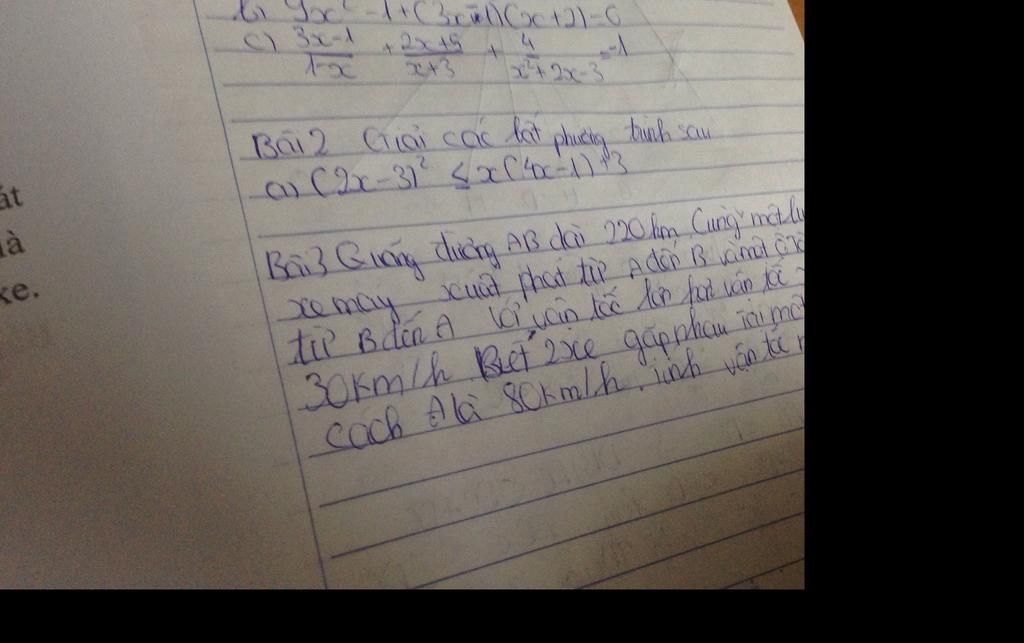 át
là
xe.
b) 9x² - 1 + (3x - 1)(x + 2) = 0
c) (3x-1)/(1-x) + (2x+5)/(x+3) + 4/(x²+2x-3) = -1
Bài 2 Giải các bất phương trình sau
a) (2x-3)² ≤ x(4x-1)+3
Bài 3 Quãng đường AB dài 220 km Cùng một
xe máy xuất phát từ A đến B và một ô tô
từ B đến A với vận tốc lớn hơn vận tốc
30km/h. Biết 2 xe gặp nhau tại
cách A là 80km/h. Tính vận tốc